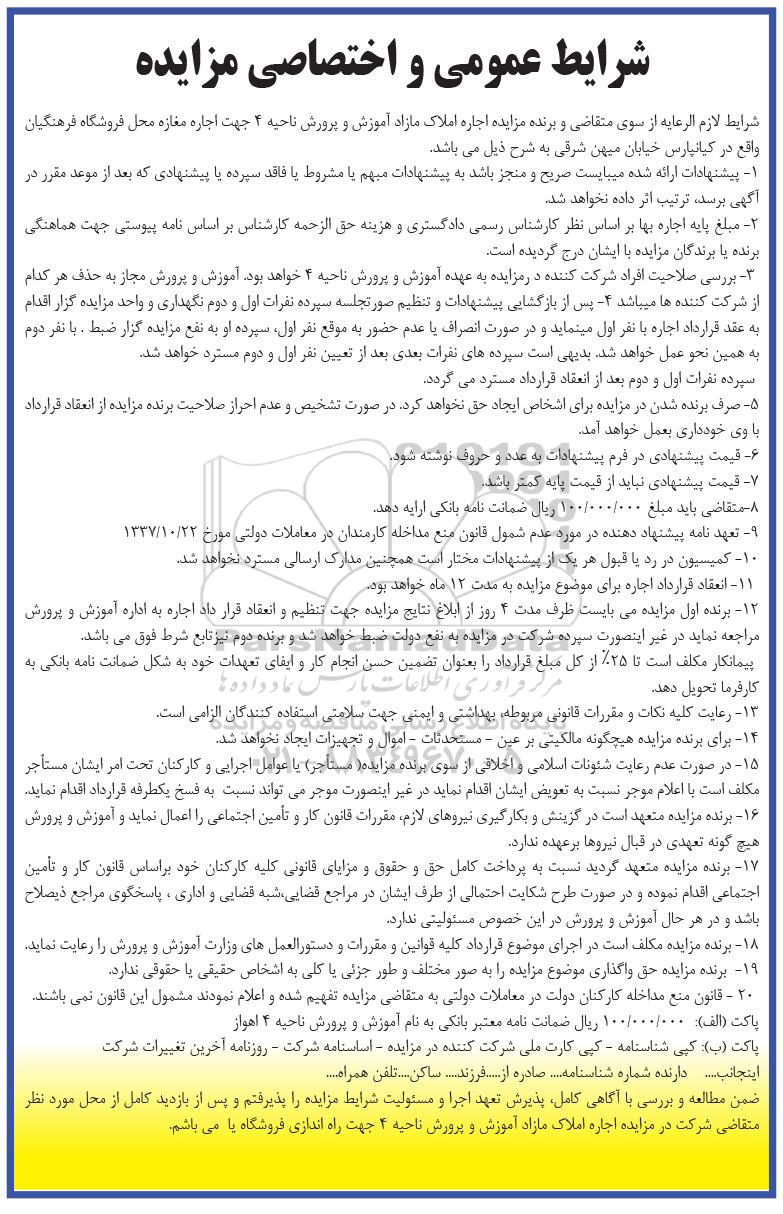 شرایط عمومی و اختصاصی مزایده
شرایط لازم الرعایه از سوی متقاضی و برنده مزایده اجاره املاک مازاد آموزش و پرورش ناحیه ۴ جهت اجاره مغازه محل فروشگاه فرهنگیان
واقع در کیانپارس خیابان میهن شرقی به شرح ذیل می باشد.
۱- پیشنهادات ارائه شده میبایست صریح و منجز باشد به پیشنهادات مبهم یا مشروط یا فاقد سپرده یا پیشنهادی که بعد از موعد مقرر در
آگهی برسد، ترتیب اثر داده نخواهد شد.
۲- مبلغ پایه اجاره بها بر اساس نظر کارشناس رسمی دادگستری و هزینه حق الزحمه کارشناس بر اساس نامه پیوستی جهت هماهنگی
برنده یا برندگان مزایده با ایشان درج گردیده است.
۳- بررسی صلاحیت افراد شرکت کننده د رمزایده به عهده آموزش و پرورش ناحیه ۴ خواهد بود. آموزش و پرورش مجاز به حذف هر کدام
از شرکت کننده ها میباشد ۴- پس از بازگشایی پیشنهادات و تنظیم صورتجلسه سپرده نفرات اول و دوم نگهداری و واحد مزایده گزار اقدام
به عقد قرارداد اجاره با نفر اول مینماید و در صورت انصراف یا عدم حضور به موقع نفر اول، سپرده او به نفع مزایده گزار ضبط . با نفر دوم
به همین نحو عمل خواهد شد. بدیهی است سپرده های نفرات بعدی بعد از تعیین نفر اول و دوم مسترد خواهد شد.
سپرده نفرات اول و دوم بعد از انعقاد قرارداد مسترد می گردد.
۵- صرف برنده شدن در مزایده برای اشخاص ایجاد حق نخواهد کرد. در صورت تشخیص و عدم احراز صلاحیت برنده مزایده از انعقاد قرارداد
با وی خودداری بعمل خواهد آمد.
۶- قیمت پیشنهادی در فرم پیشنهادات به عدد و حروف نوشته شود.
۷- قیمت پیشنهادی نباید از قیمت پایه کمتر باشد.
۸-متقاضی باید مبلغ ۱۰۰/۰۰۰/۰۰۰ ریال ضمانت نامه بانکی ارایه دهد.
۹- تعهد نامه پیشنهاد دهنده در مورد عدم شمول قانون منع مداخله کارمندان در معاملات دولتی مورخ ۱۳۳۷/۱۰/۲۲
۱۰- کمیسیون در رد یا قبول هر یک از پیشنهادات مختار است همچنین مدارک ارسالی مسترد نخواهد شد.
۱۱- انعقاد قرارداد اجاره برای موضوع مزایده به مدت ۱۲ ماه خواهد بود.
۱۲- برنده اول مزایده می بایست ظرف مدت ۴ روز از ابلاغ نتایج مزایده جهت تنظیم و انعقاد قرار داد اجاره به اداره آموزش و پرورش
مراجعه نماید در غیر اینصورت سپرده شرکت در مزایده به نفع دولت ضبط خواهد شد و برنده دوم نیزتابع شرط فوق می باشد.
پیمانکار مکلف است تا ۲۵٪ از کل مبلغ قرارداد را بعنوان تضمین حسن انجام کار و ایفای تعهدات خود به شکل ضمانت نامه بانکی به
کارفرما تحویل دهد.
۱۳- رعایت کلیه نکات و مقررات قانونی مربوطه، بهداشتی و ایمنی جهت سلامتی استفاده کنندگان الزامی است.
۱۴- برای برنده مزایده هیچگونه مالکیتی بر عین - مستحدثات - اموال و تجهیزات ایجاد نخواهد شد.
۱۵- در صورت عدم رعایت شئونات اسلامی و اخلاقی از سوی برنده مزایده( مستأجر) یا عوامل اجرایی و کارکنان تحت امر ایشان مستأجر
مکلف است با اعلام موجر نسبت به تعویض ایشان اقدام نماید در غیر اینصورت موجر می تواند نسبت به فسخ یکطرفه قرارداد اقدام نماید.
۱۶- برنده مزایده متعهد است در گزینش و بکارگیری نیروهای لازم، مقررات قانون کار و تأمین اجتماعی را اعمال نماید و آموزش و پرورش
هیچ گونه تعهدی در قبال نیروها برعهده ندارد.
۱۷- برنده مزایده متعهد گردید نسبت به پرداخت کامل حق و حقوق و مزایای قانونی کلیه کارکنان خود براساس قانون کار و تأمین
اجتماعی اقدام نموده و در صورت طرح شکایت احتمالی از طرف ایشان در مراجع قضایی،شبه قضایی و اداری ، پاسخگوی مراجع ذیصلاح
باشد و در هر حال آموزش و پرورش در این خصوص مسئولیتی ندارد.
۱۸- برنده مزایده مکلف است در اجرای موضوع قرارداد کلیه قوانین و مقررات و دستورالعمل های وزارت آموزش و پرورش را رعایت نماید.
۱۹- برنده مزایده حق واگذاری موضوع مزایده را به صور مختلف و طور جزئی یا کلی به اشخاص حقیقی یا حقوقی ندارد.
۲۰ - قانون منع مداخله کارکنان دولت در معاملات دولتی به متقاضی مزایده تفهیم شده و اعلام نمودند مشمول این قانون نمی باشند.
پاکت (الف): ۱۰۰/۰۰۰/۰۰۰ ریال ضمانت نامه معتبر بانکی به نام آموزش و پرورش ناحیه ۴ اهواز
پاکت (ب): کپی شناسنامه - کپی کارت ملی شرکت کننده در مزایده - اساسنامه شرکت - روزنامه آخرین تغییرات شرکت
اینجانب.... دارنده شماره شناسنامه.... صادره از.....فرزند.... ساکن....تلفن همراه....
ضمن مطالعه و بررسی با آگاهی کامل، پذیرش تعهد اجرا و مسئولیت شرایط مزایده را پذیرفتم و پس از بازدید کامل از محل مورد نظر
متقاضی شرکت در مزایده اجاره املاک مازاد آموزش و پرورش ناحیه ۴ جهت راه اندازی فروشگاه یا می باشم.